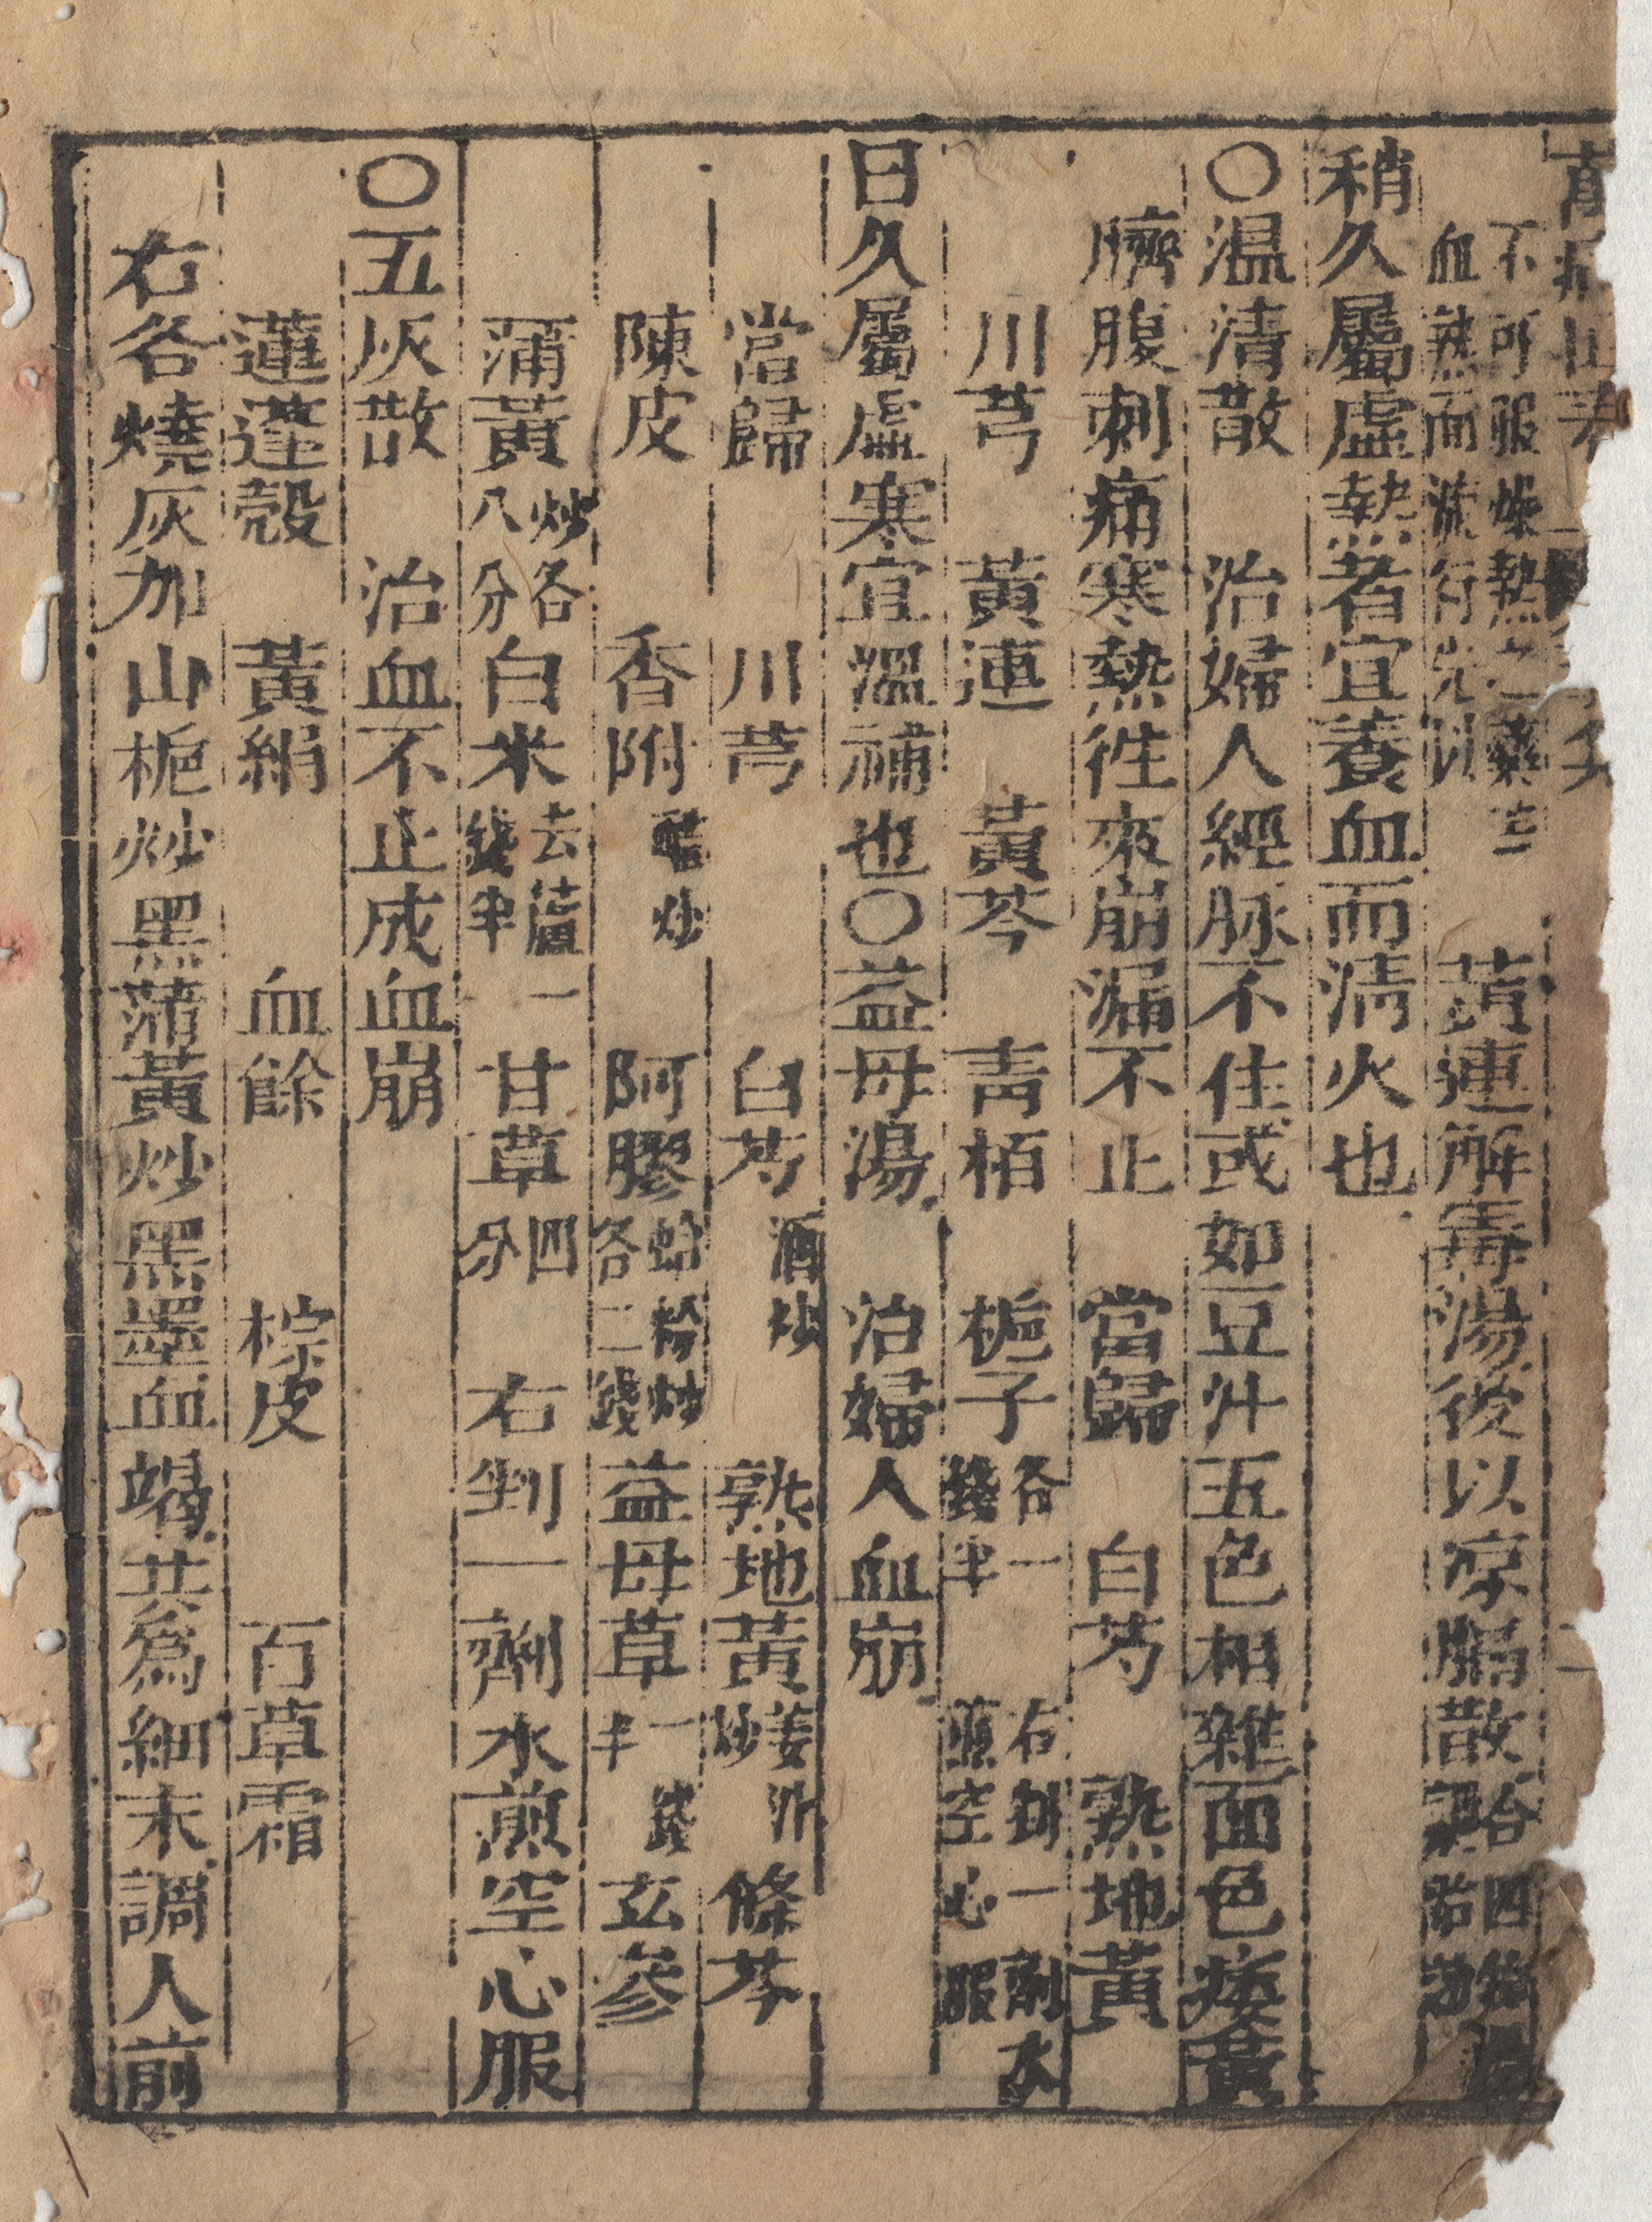 萬病回春
不可服燥熱之藥
血熱而流行先以
黃連解毒湯後以涼膈散合四物湯
稍久屬虛熱者宜養血而清火也
○溫清散　治婦人經脉不住或如豆汁五色相雜面色痿黃
臍腹刺痛寒熱徃來崩漏不止　當歸　白芍　熟地黃
川芎　黃連　黃芩　黃栢　梔子各一錢半　右剉一劑水煎空心服
日久屬虛寒宜溫補也○益母湯　治婦人血崩
當歸　川芎　白芍酒炒　熟地黃姜汁炒　條芩
陳皮　香附醋炒　阿膠蛤粉炒各二錢　益母草一錢半　玄參
蒲黃炒各八分　白朮去蘆一錢半　甘草四分　右剉一劑水煎空心服
○五灰散　治血不止成血崩
蓮蓬殻　黃絹　血餘　棕皮　百草霜
右各燒灰加山梔炒黑蒲黃炒黑墨血竭共爲細末調入前